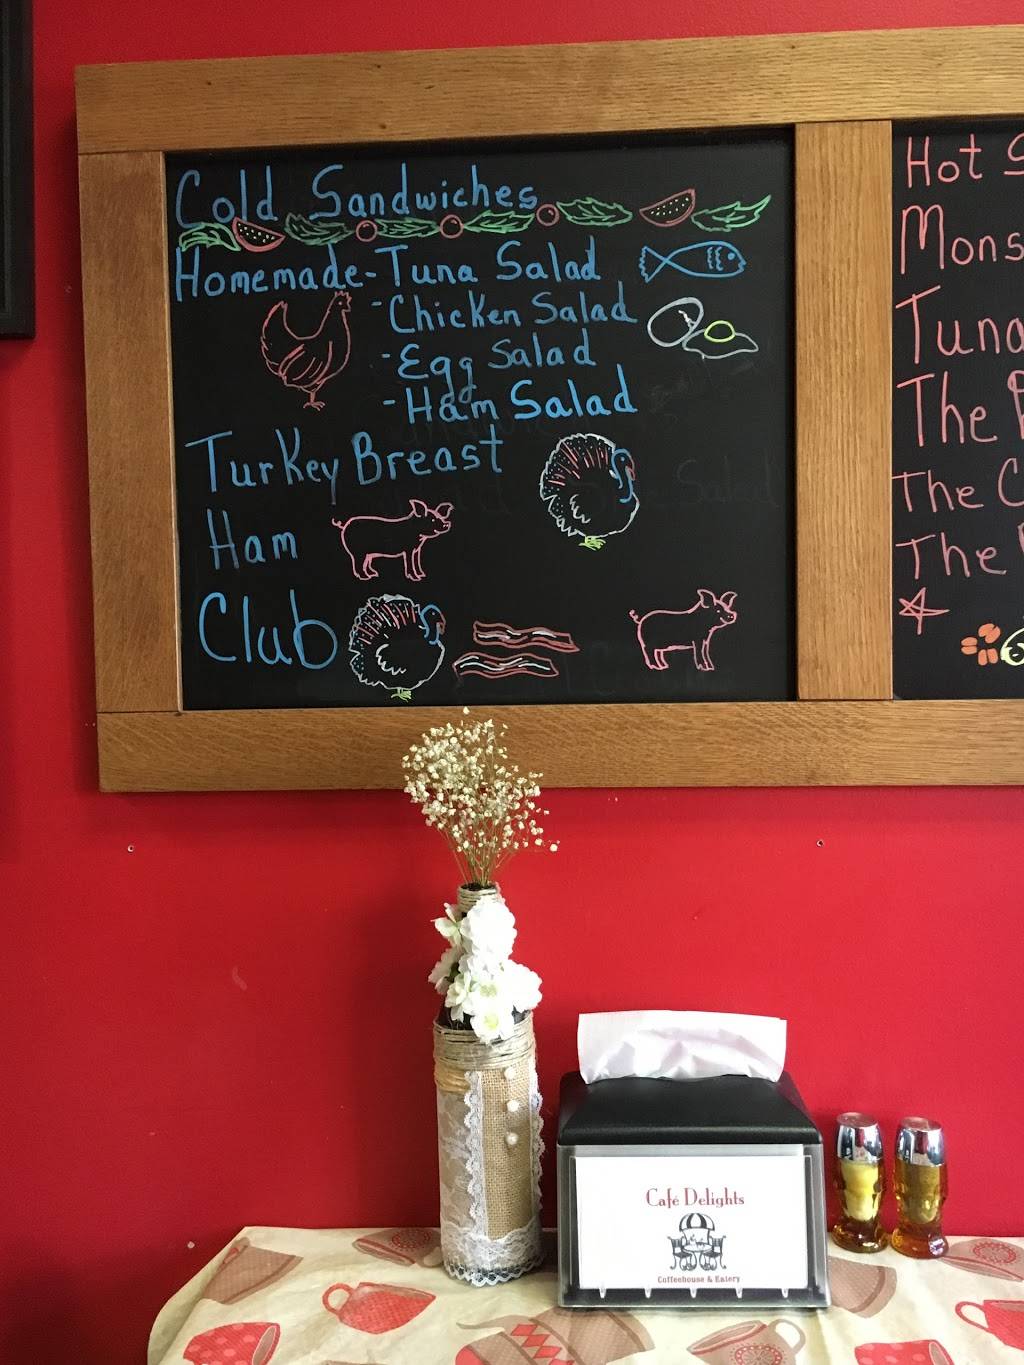 Cold Sandwiches
Homemade - Tuna Salad
- Chicken Salad
- Egg Salad
- Ham Salad
Turkey Breast
Ham
Club
Hot
Tuna
The
The
The
Café Delights
Coffeehouse & Eatery